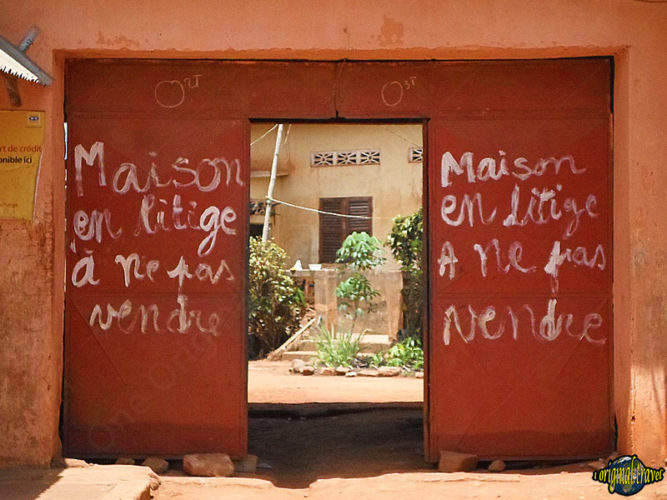 rt de crédit
ponible ici
Maison
en litige
à ne pas
vendre
Maison
en litige
A ne pas
vendre
original-travel